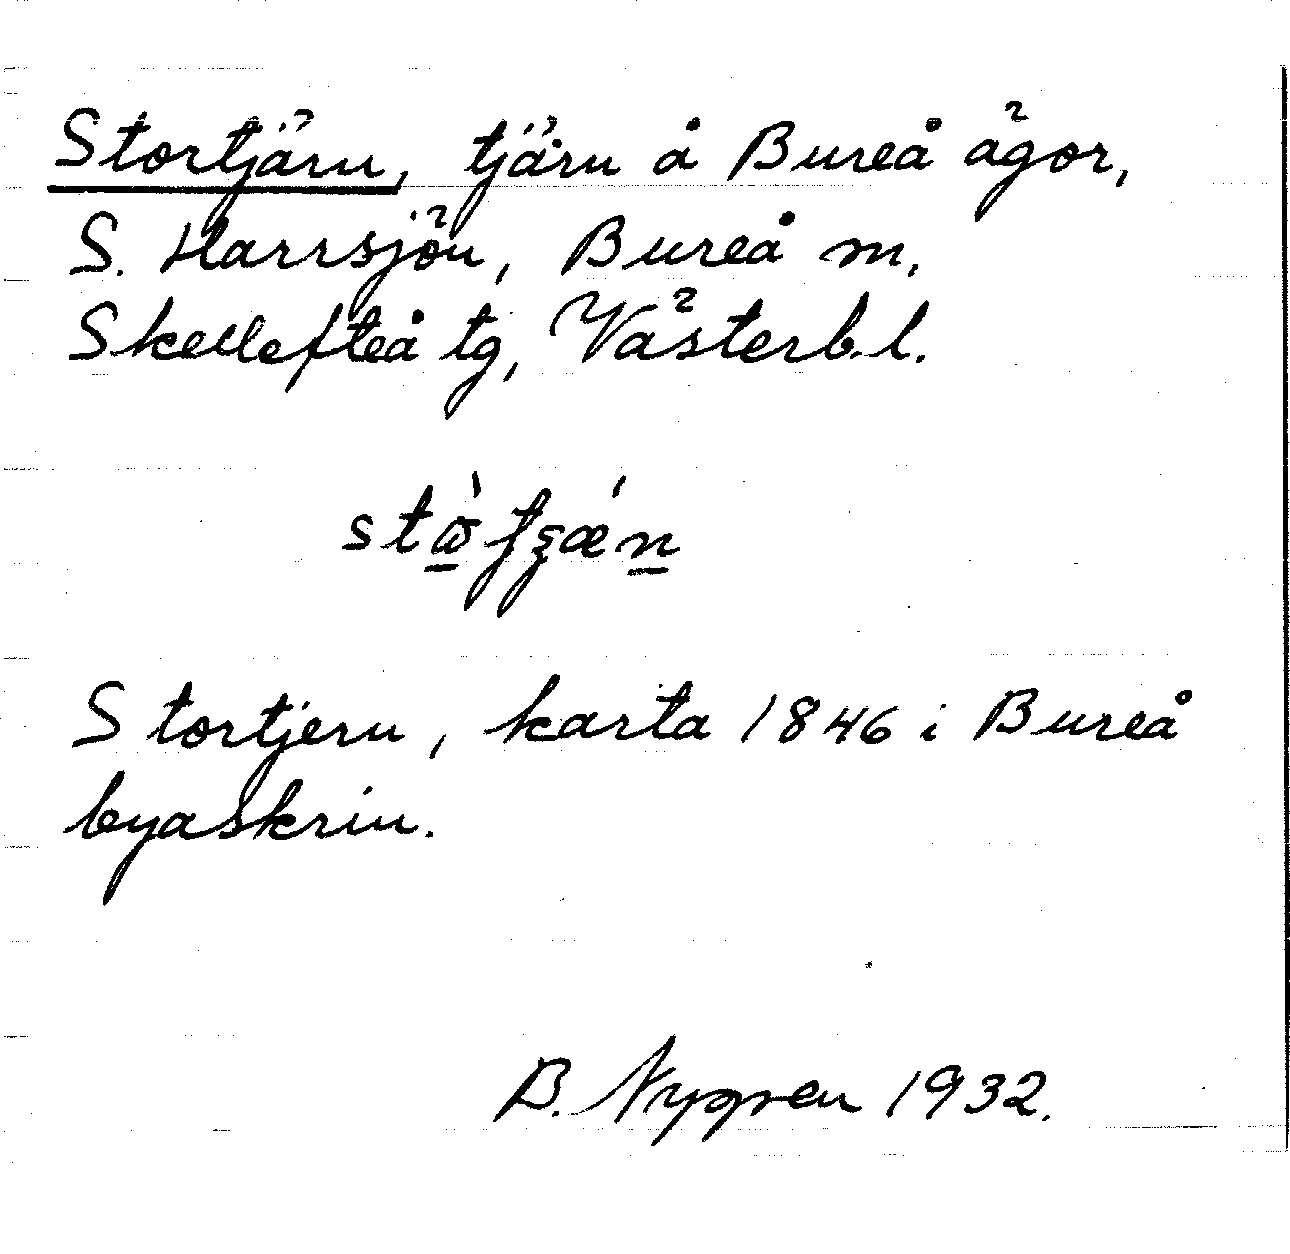 Stortjärn, tjärn å Bureå ägor,
S. Harrsjön, Bureå m,
Skellefteå tg, Västerb. l.
Stortjern, karta 1846 i Bureå
byaskrin.
B. Nygren 1932.